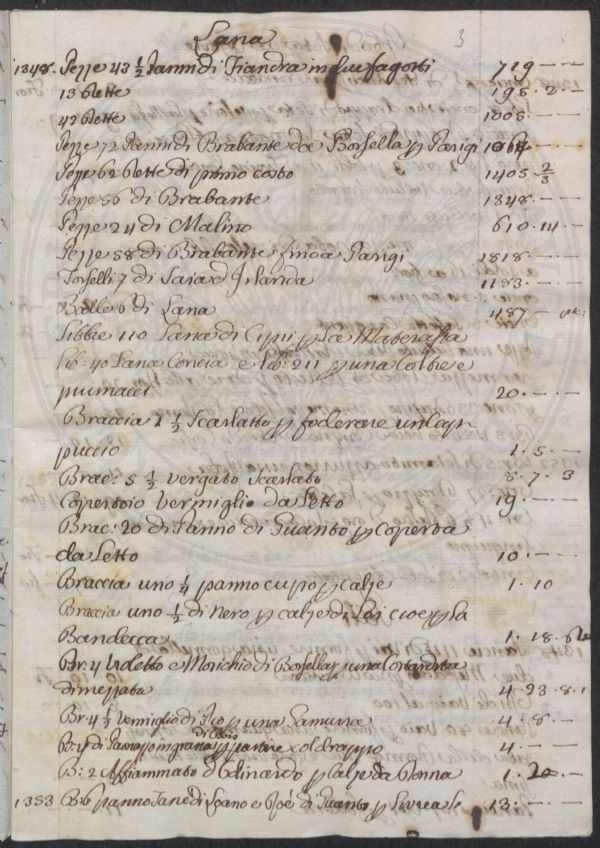 Lana
3
1348. Pezze 43 1/2 Panni di Fiandra in due fagotti 719 — —
13 dette 195 . 2 —
42 dette 1005 — —
Pezze 72 Panni di Brabante da Borsella p Parigi 1064 — —
Pezze 62 dette di primo costo 1405 . 2/3
Pezze 56 di Brabante 1348 — —
Pezze 24 di Malino 610 . 14 —
Pezze 58 di Brabante fino a Parigi 1818 — —
Torselli 7 di Saia d'Irlanda 1183 — —
Balle 6 di Lana 487 —
Libbre 110 Lana di Cipii p la Materassa
lib: 40 Lana Concia e lib: 211 p una Coltre e
piumacci 20 — —
Braccia 1 1/2 Scarlatto p foderare un cap
puccio 1 . 5 . —
Brac: 5 1/2 vergato scarlato 8 . 7 . 3
Copertoio vermiglio da Letto 19 . — —
Brac: 20 di Panno di Guanto p Coperta
da Letto 10 . — —
Braccia uno 1/4 panno cupo p calze 1 . 10
Braccia uno 1/2 di nero p calze di Lui cioè p la
1 . 18 .
Br: 4 Violetto e Morichio di Borsella p una
di mezzata 4 . 23 . 8 . 1
Br 4 1/2 vemiglio di p una 4 . 8 . —
B: 4 di Paonazo in grana p 4 . —
B: 2 Affiammato p Calze da Donna 1 . 20 . —
1353 B: 6 panno 13 . — —